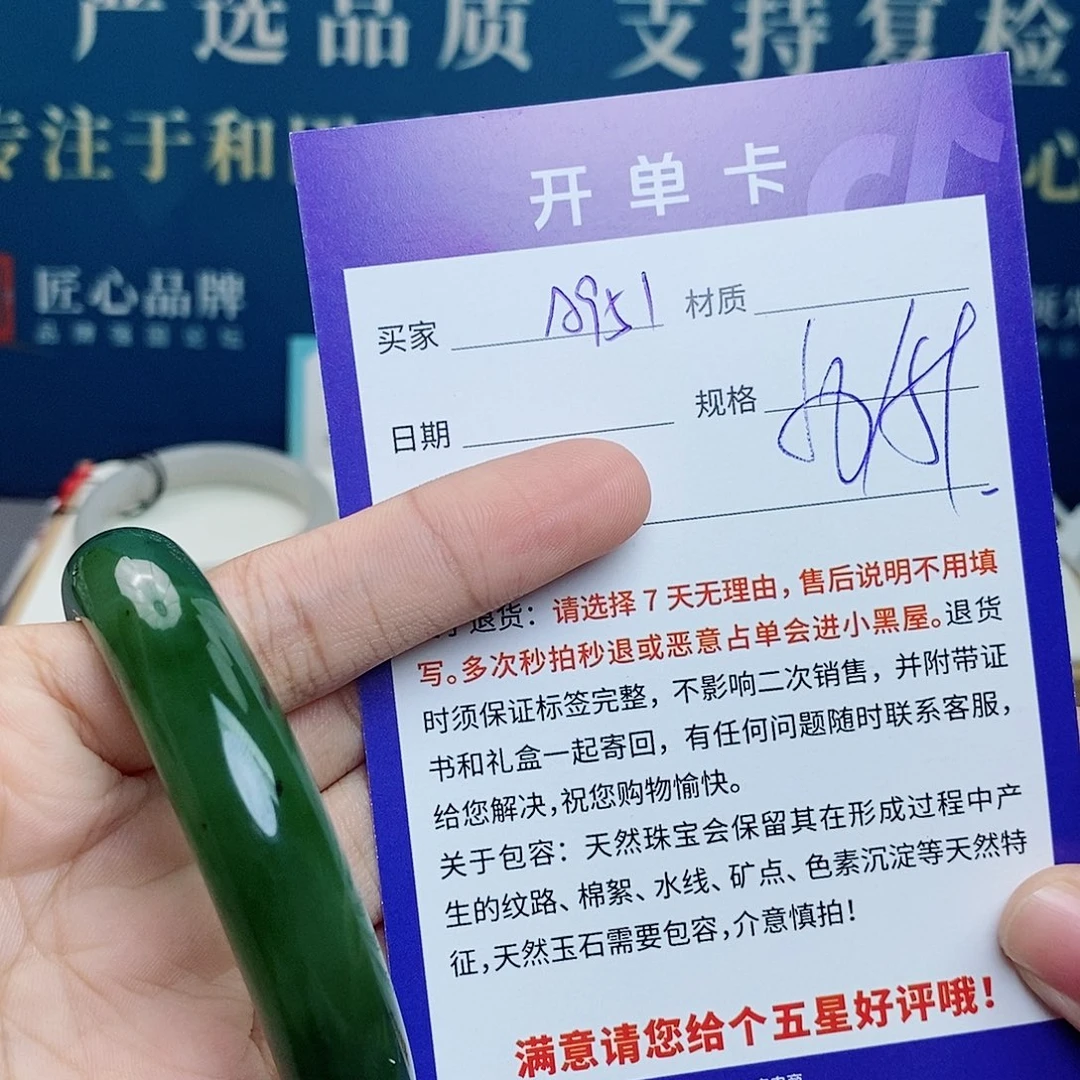 严选品质 支持复检
专注于和
心
匠心品牌
开单卡
买家 材质
日期 规格
退货：请选择7天无理由，售后说明不用填
写。多次秒拍秒退或恶意占单会进小黑屋。退货
时须保证标签完整，不影响二次销售，并附带证
书和礼盒一起寄回，有任何问题随时联系客服，
给您解决，祝您购物愉快。
关于包容：天然珠宝会保留其在形成过程中产
生的纹路、棉絮、水线、矿点、色素沉淀等天然特
征，天然玉石需要包容，介意慎拍！
满意请您给个五星好评哦！